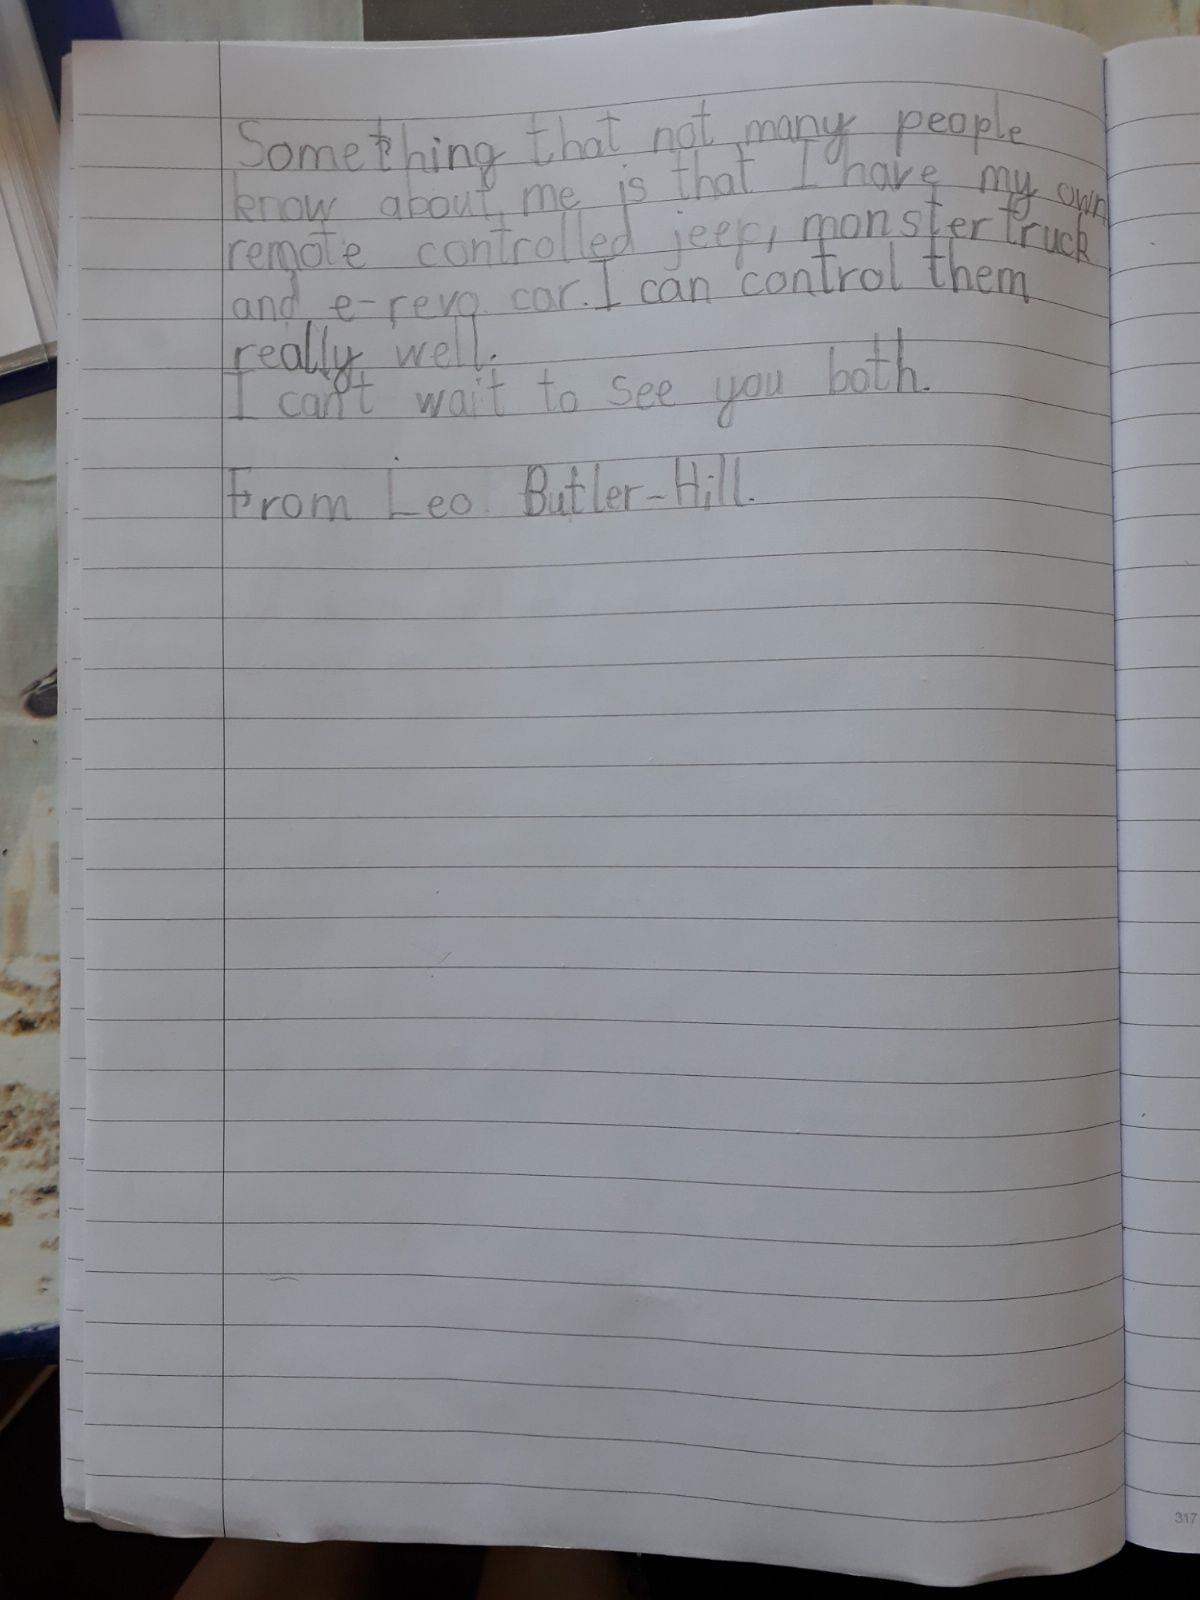 Something that not many people
know about me is that I have my own
remote controlled jeep, monster truck
and e-revo car. I can control them
really well.
I can't wait to see you both.
From Leo Butler-Hill.
317